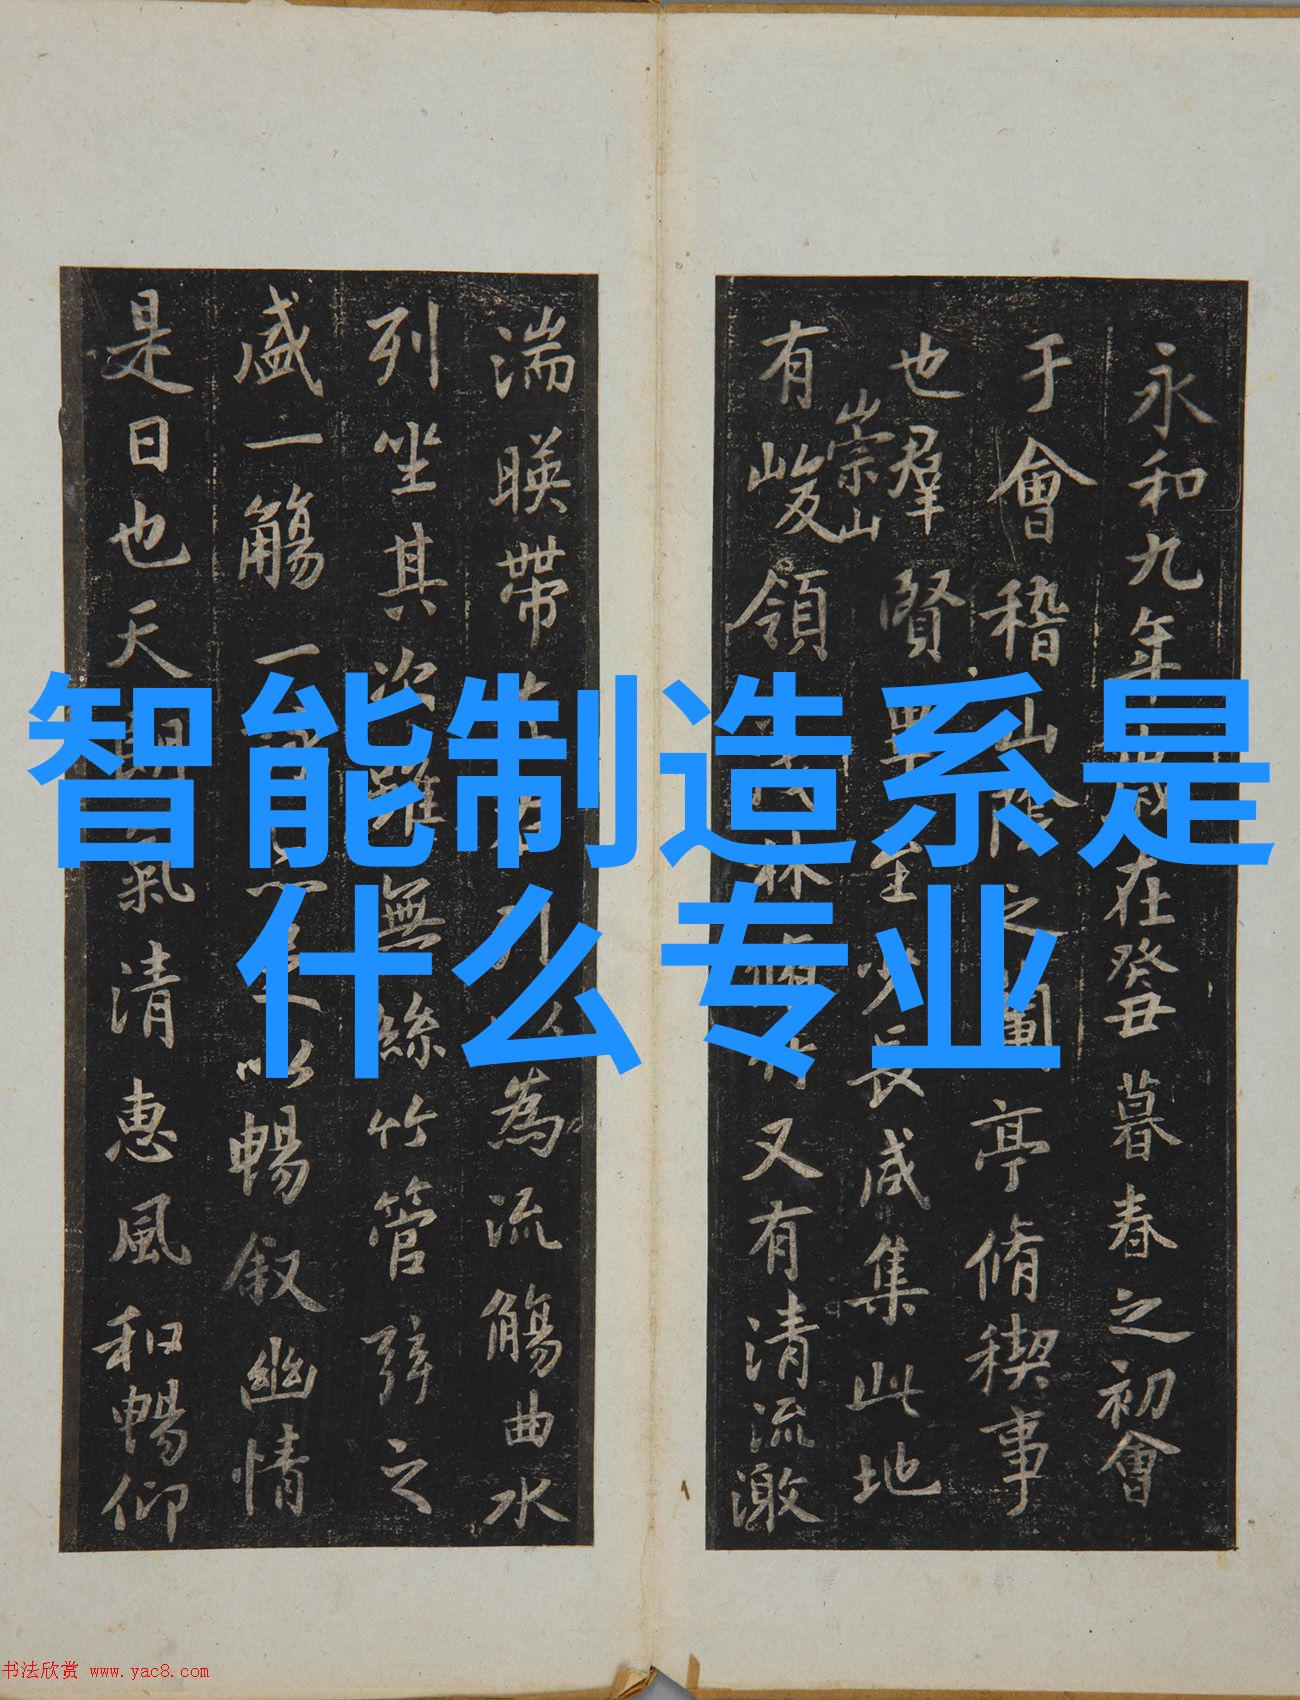 智能制造系是
什么专业
永和九年歲在癸丑暮春之初會
于會稽山陰之蘭亭脩稧事
也羣賢畢至少長咸集此地
有崇山峻領茂林脩竹又有清流激
湍暎帶左右引以為流觴曲水
列坐其次雖無絲竹管弦之
盛一觴一詠亦足以暢叙幽情
是日也天朗氣清惠風和暢仰
书法欣赏 www.yac8.com